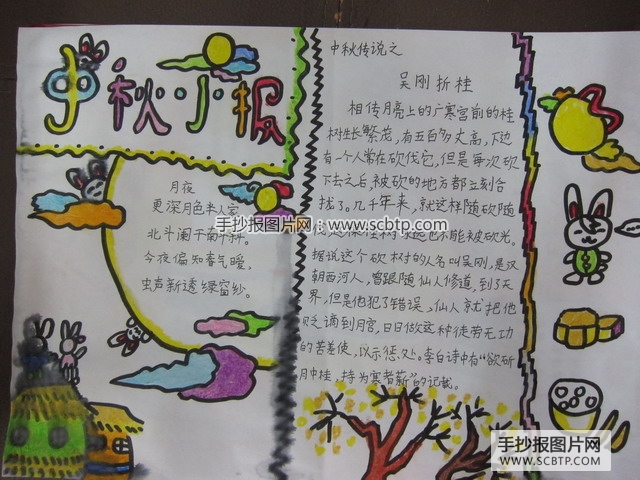 中秋小报
月夜
更深月色半人家
北斗阑干南斗斜。
今夜偏知春气暖，
虫声新透绿窗纱。
中秋传说之
吴刚折桂
相传月亮上的广寒宫前的桂
树生长繁茂，有五百多丈高，下边
有一个人常在砍伐它，但是每次砍
下去之后，被砍的地方都立刻合
拢了。几千年来，就这样随砍随
也不能被砍光。
据说这个砍树的人名叫吴刚，是汉
朝西河人，曾跟随仙人修道，到了天
界，但是他犯了错误，仙人就把他
贬谪到月宫，日日做这种徒劳无功
的苦差使，以示惩处。李白诗中有“欲斫
月中桂，持为寒者薪”的记载。
手抄报图片网
www.scbtp.com
手抄报图片网
WWW.SCBTP.COM